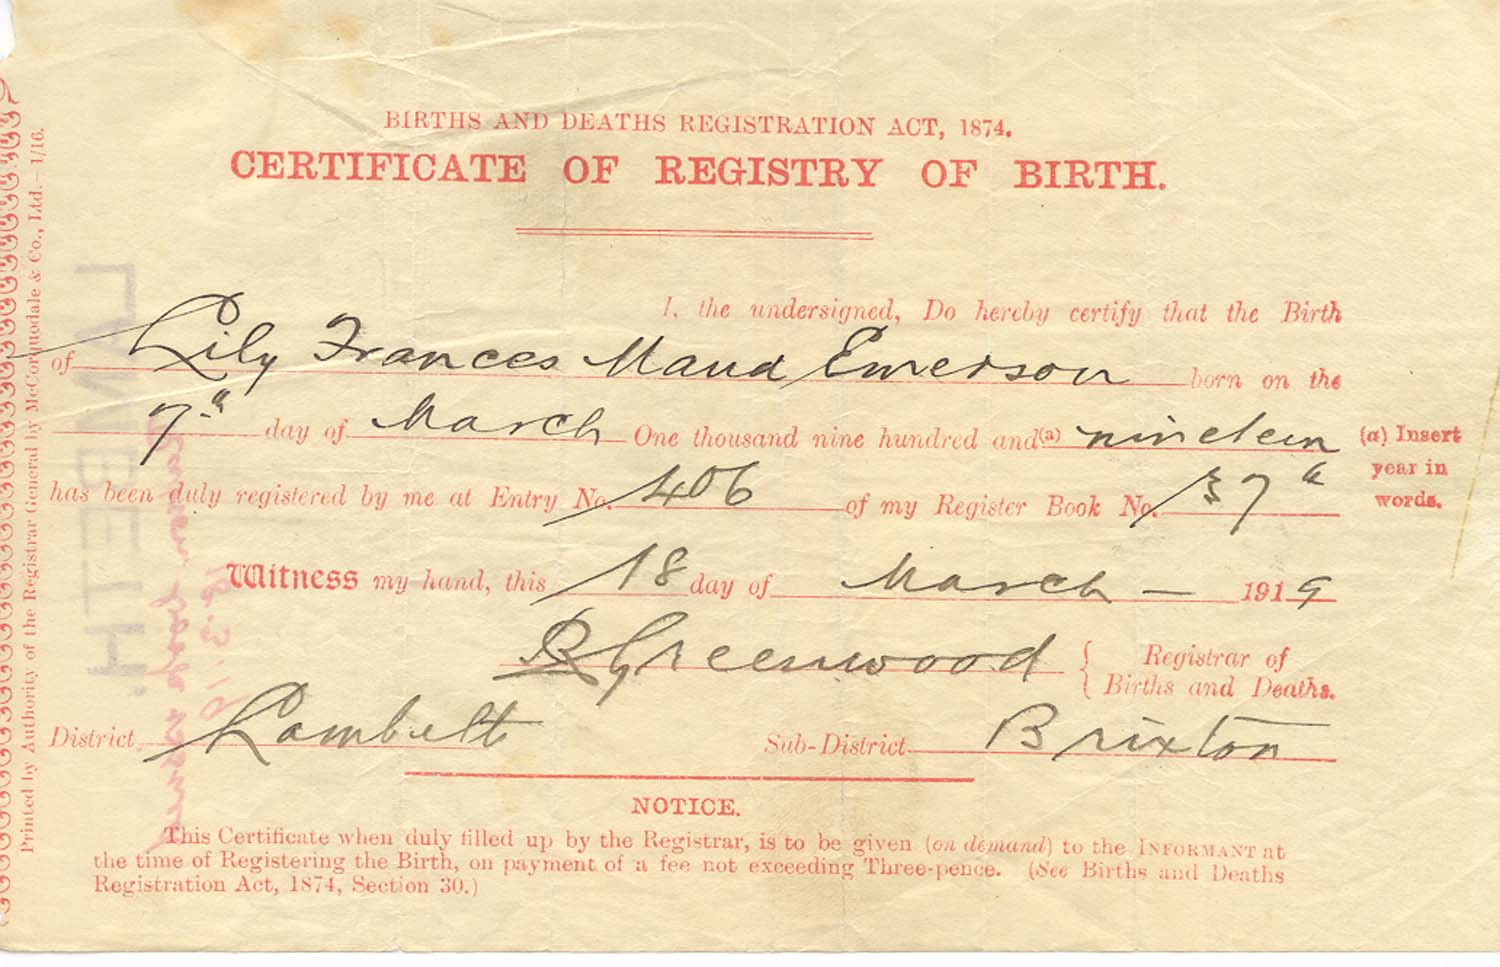 BIRTHS AND DEATHS REGISTRATION ACT, 1874.
CERTIFICATE OF REGISTRY OF BIRTH.
I, the undersigned, Do hereby certify that the Birth
of Lily Frances Maud Emerson born on the
7th day of March One thousand nine hundred and(a) nineteen
(a) Insert year in words.
has been duly registered by me at Entry No. 406 of my Register Book No. 37th
Witness my hand, this 18 day of March — 1919
Greenwood { Registrar of
Births and Deaths.
District Lambeth Sub-District Brixton
NOTICE.
This Certificate when duly filled up by the Registrar, is to be given (on demand) to the INFORMANT at
the time of Registering the Birth, on payment of a fee not exceeding Three-pence. (See Births and Deaths
Registration Act, 1874, Section 30.)
Printed by Authority of the Registrar General by McCorquodale & Co., Ltd.—1/16.